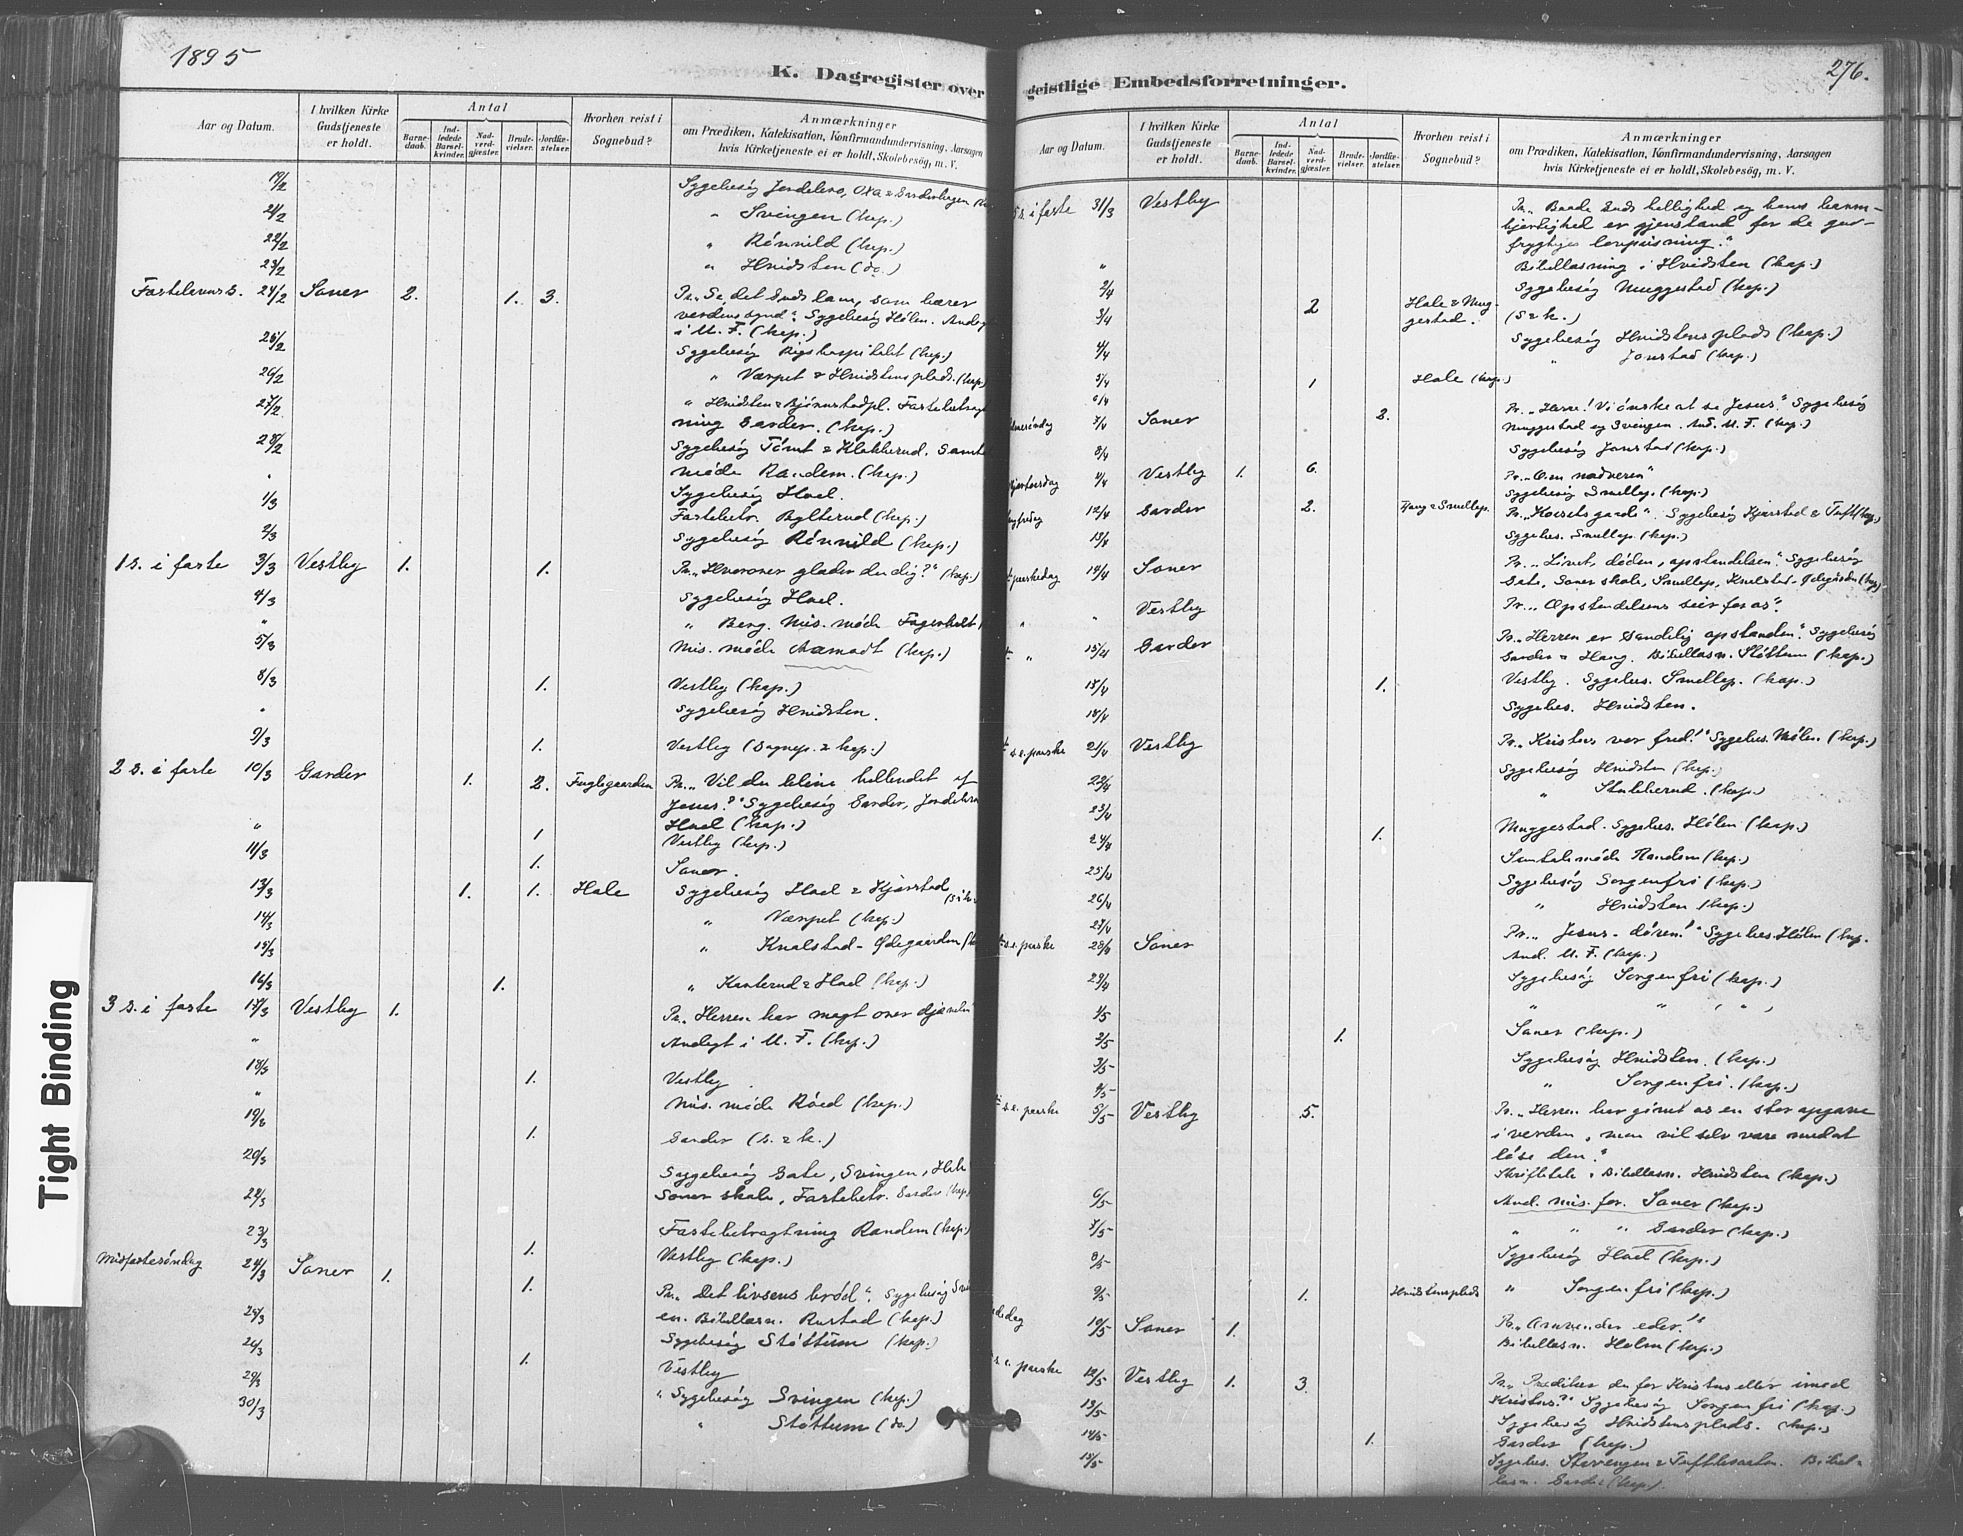 1895
K. Dagregister over
Aar og Datum.
I hvilken Kirke Gudstjeneste er holdt.
Antal
Barnedaab.
Indledede Barselkvinder.
Nadverdgjæster.
Brudevielser.
Jordfæstelser.
Hvorhen reist i Sognebud?
Anmærkninger
om Prædiken, Katekisation, Konfirmandundervisning, Aarsagen
hvis Kirketjeneste ei er holdt, Skolebesög, m. V.
Sygebesög
21/2 " Svingen (kap.)
22/2 " Rönnild (kap.)
23/2 " Hvidsten (do.)
Fastelavns s. 24/2 Soner 2. 1. 3. Pr. "Se, det Guds lam, som bærer
verdens synd". Sygebesög Hölen.
i U. F. (kap.)
25/2 Sygebesög Rigshospitalet (kap.)
26/2 " Værpet & Hvidstensplads. (kap
27/2 " Hvidsten & Bjørnstadpl.
ning Garder. (kap.)
28/2 Sygebesög Tömt & Klokkerud.
" möde Randem. (kap.)
1/3 Sygebesög Hoel.
Fastebetr. Bylterud (kap.)
2/3 Sygebesög Rönnild (kap.)
1 s. i faste 3/3 Vestby 1. 1. Pr. "Hvorover glæder du dig?" (kap.)
4/3 Sygebesög Hoel.
" " Berg. Mis. möde Fagerholt
5/3 Mis. möde Aamodt (kap.)
8/3 1. Vestby (kap.)
" Sygebesög Hvidsten.
9/3 1. Vestby (Sognep. & kap.)
2 s. i faste 10/3 Garder 1. 2. Fuglegaarden Pr. "Vil du blive helbredet af
Jesus?" Sygebesög Garder,
Hoel (kap.)
" 1 Vestby (kap.)
11/3 1. Soner.
13/3 1. 1. Hole Sygebesög Hoel & Kjærstad
14/3 " Værpet (kap.)
15/3 " Knalstad-Ødegaarden
16/3 1. " Kanterud & Hoel (kap.)
3 s. i faste 17/3 Vestby 1. Pr. "Herren har magt over
" Andagt i U. F. (kap.)
18/3 1. Vestby
" Mis. möde Röed (kap.)
19/3 1. Garder (s. & k.)
20/3 Sygebesög Gate, Svingen,
Soner skole, Fastebetr. Garder (kap)
Fastebetragtning Randem (kap.)
23/3 1. Vestby (kap.)
Midfastesöndag 24/3 Soner 1. 1. Pr. "Det livsens bröd". Sygebesög
en. Bibellæsn. Rustad (kap.)
Sygebesög Stöttum (kap.)
1. Vestby
29/3 " Sygebesög Svingen (kap.)
30/3 " Stöttum (do.)
276.
geistlige Embedsforretninger.
Aar og Datum.
I hvilken Kirke Gudstjeneste er holdt.
Antal
Barnedaab.
Indledede Barselkvinder.
Nadverdgjæster.
Brudevielser.
Jordfæstelser.
Hvorhen reist i Sognebud?
Anmærkninger
om Prædiken, Katekisation, Konfirmandundervisning, Aarsagen
hvis Kirketjeneste ei er holdt, Skolebesög, m. V.
5 s. i faste 31/3 Vestby Pr. "Baade Guds hellighed og hans barm-
hjertighed er gjenstand for de gud-
frygtiges lovprisning."
" Bibellæsning i Hvidsten (kap.)
2/4 Sygebesög Muggestad (kap.)
3/4 2 Hole & Mug-
gestad. (S & k.)
4/4 Sygebesög Hvidstensplads (kap.)
" Jonstad (kap.)
5/4 1 Hole (kap.)
6/4
7/4 Soner 2. Pr. "Herre! Vi önske at se Jesus." Sygebesög
Muggestad og Svingen. And. U. F. (kap.)
8/4 Sygebesög Jonstad (kap.)
Vestby 1. 6. Pr. "Om nadveren"
Sygebesög Smellep. (kap.)
12/4 Garder 2. Haug & Smellep. Pr. "Korsets gaade". Sygebesög Kjærstad & Tuft (kap.)
13/4 Sygebes. Smellep. (kap.)
paaskedag 14/4 Soner Pr. "Livet, döden, opstandelsen". Sygebesög
Gate, Soner skole, Smellep, Knalstad-Ødegården (kap)
" " Vestby Pr. "Opstandelsens seier for os".
" 15/4 Garder Pr. "Herren er sandelig opstanden". Sygebesög
Garder & Haug. Bibellæsn. Stöttum (kap.)
1. Vestby. Sygebes. Smellep. (kap.)
18/4 Sygebes. Hvidsten.
s. e. paaske 21/4 Vestby Pr. "Kristus vor fred!" Sygebes. Mölen. (kap.)
Sygebesög Hvidsten (kap.)
22/4 " Stakkerud. (kap.)
23/4
24/4 1. Muggestad. Sygebes. Hölen (kap.)
25/4 Samtalemöde Randem (kap.)
26/4 Sygebesög Sorgenfri (kap.)
27/4 " Hvidsten (kap.)
s. e. paaske 28/4 Soner Pr. "Jesus - dören!" Sygebes. Hölen (kap.
And. U. F. (kap.)
29/4 Sygebesög Sorgenfri (kap.)
1/5 " " " "
2/5 1. Soner (kap.)
3/5 Sygebesög Hvidsten. (kap.)
4/5 " Sorgenfri. (kap.)
s. e. paaske 5/5 Vestby 5. Pr. "Herren har givet os en stor opgave
i verden, men vil selv være med at
löse den."
Skriftetale. Bibellæsn. Hvidsten (kap.)
6/5 And. mis. for. Soner (kap.)
7/5 " " " Garder (kap.)
8/5 Sygebesög Hoel (kap.)
9/5 1. Hvidstensplads " Sorgenfri (kap.)
10/5 Soner 1. Pr. "Omvender eder!"
Bibellæsn. Holm (kap.)
s. e. paaske 12/5 Vestby 1. 3. Pr. "Prædiker du for Kristus eller imod
Kristus?" Sygebesög Sorgenfri (kap.)
13/5 Sygebesög Hvidstensplads. (kap.)
14/5 1. Garder (kap.)
15/5 Sygebes. Bibel-
læsn. Garder (kap.)
Tight Binding